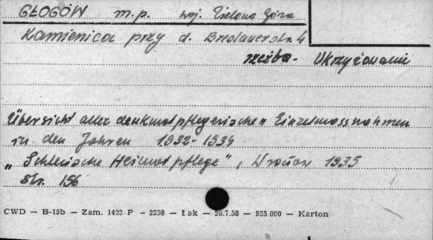 GŁOGÓW m.p. woj. Zielona Góra
Kamienica przy d. Breslauerstr. 4
rzeźba. Ukrzyżowanie
Übersicht aller denkmalpflegerischen Einzelmassnahmen
in den Jahren 1932-1934
„Schlesische Heimatpflege", Wrocław 1935
str. 156
CWD — B-15b — Zam. 1492-P — 2398 — Łak — 26.7.58 — 935.000 — Karton